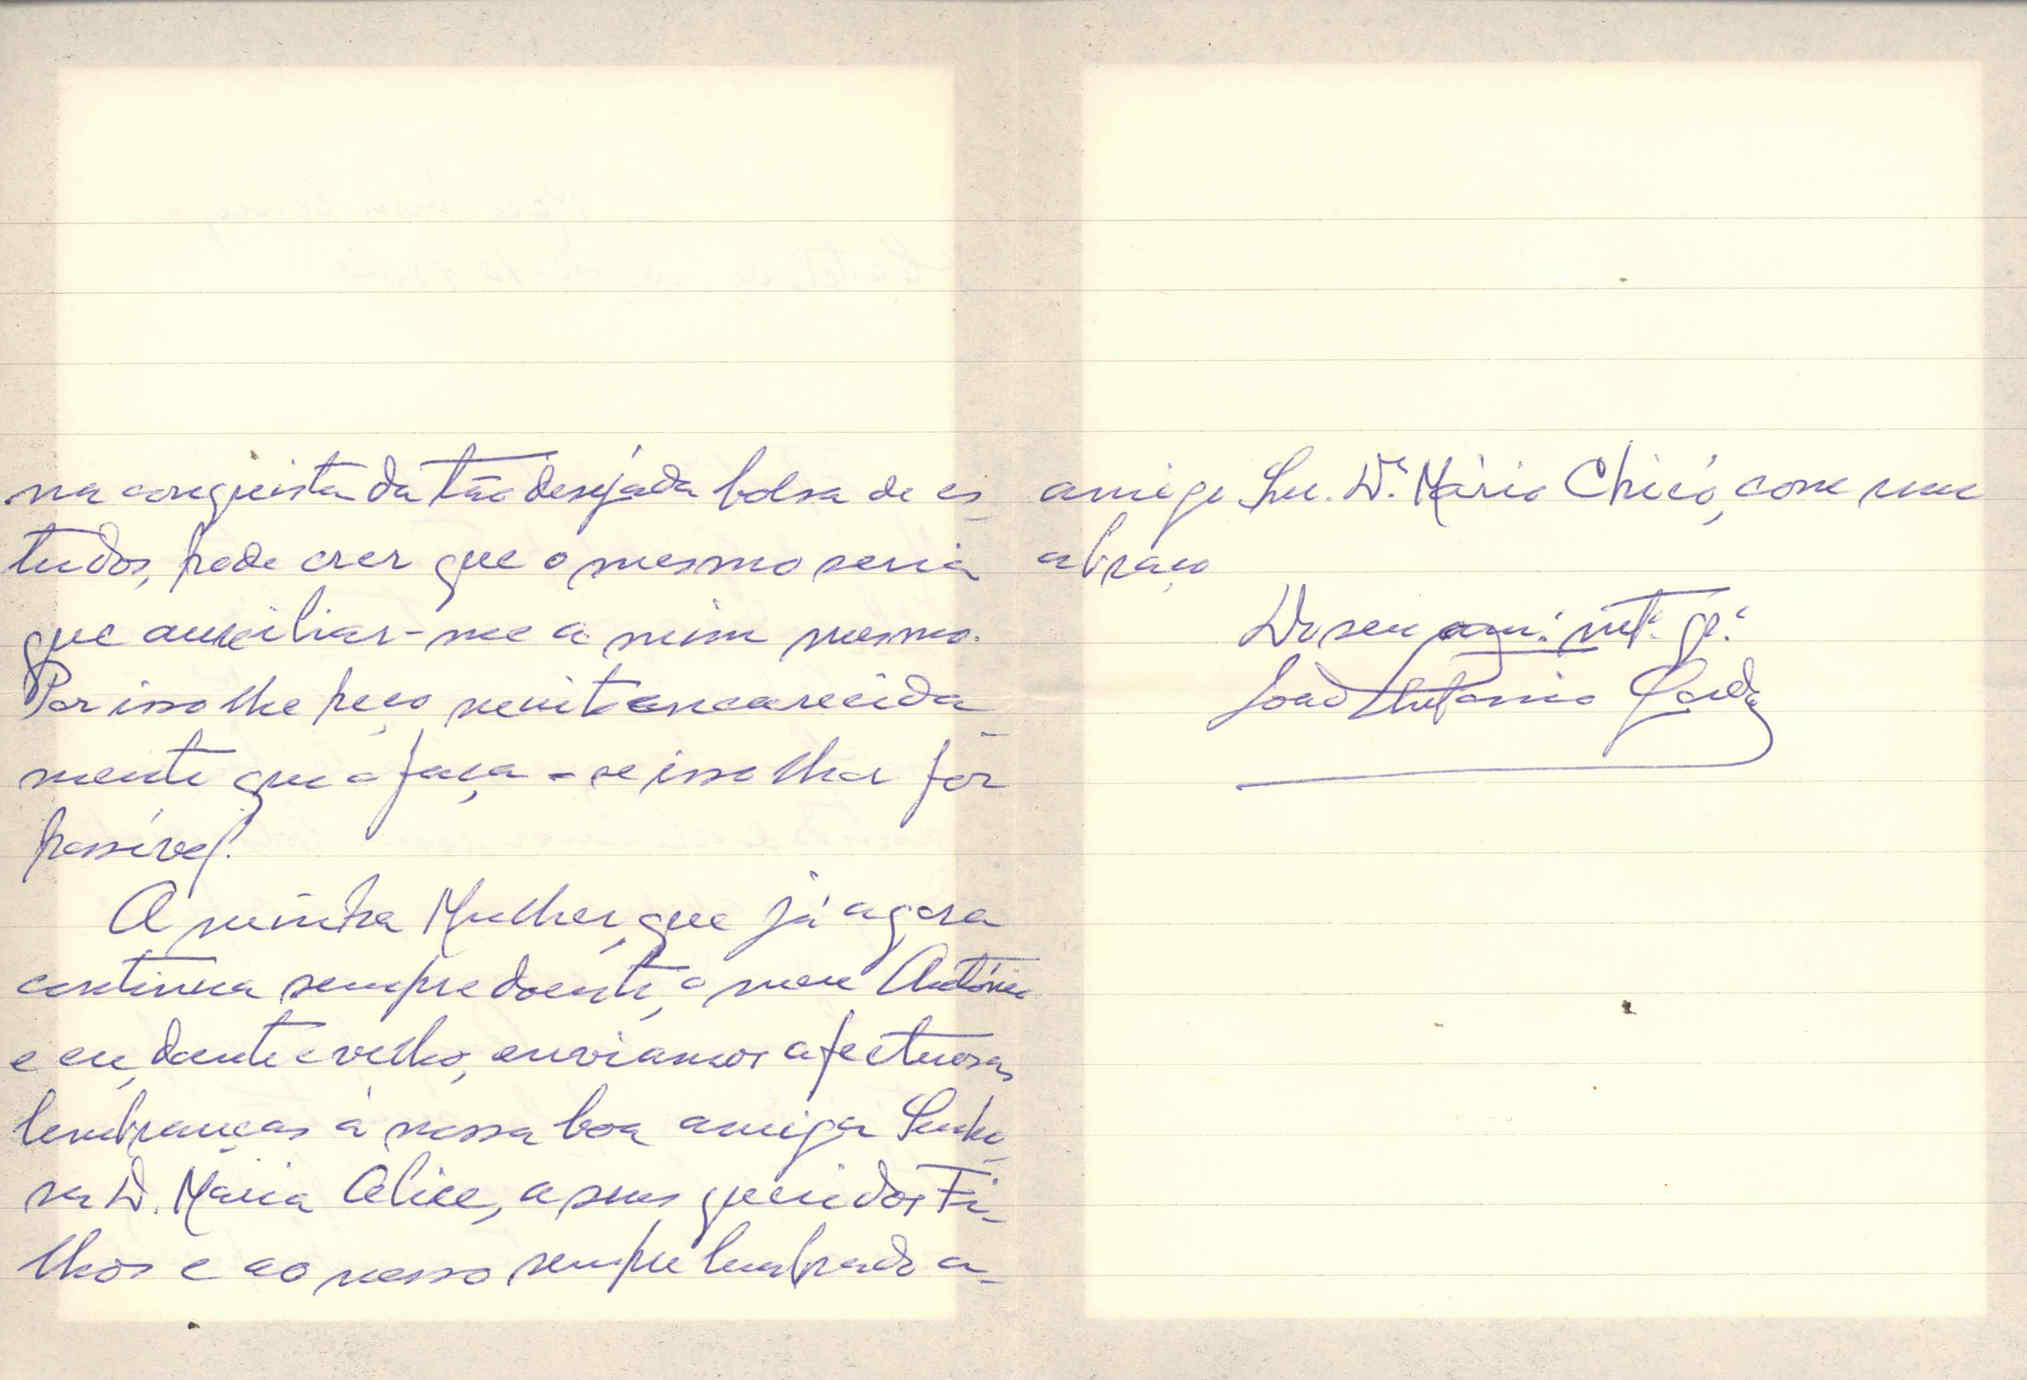 na conquista da tão desejada bolsa de es-
tudos, pode crer que o mesmo seria
que auxiliar-me a mim mesmo.
Por isso lhe peço muito encarecida-
mente que o faça - se isso lhe for
possível.
A minha Mulher, que já agora
continua sempre doente, o meu António
e eu, doente e velho, enviamos afectuosas
lembranças à nossa boa amiga Senho-
ra D. Maria Alice, a seus queridos Fi-
lhos e ao nosso sempre lembrado a-
amigo Snr. Dr. Mário Chicó, com um
abraço
Do seu am.º mt.º g.º
João António